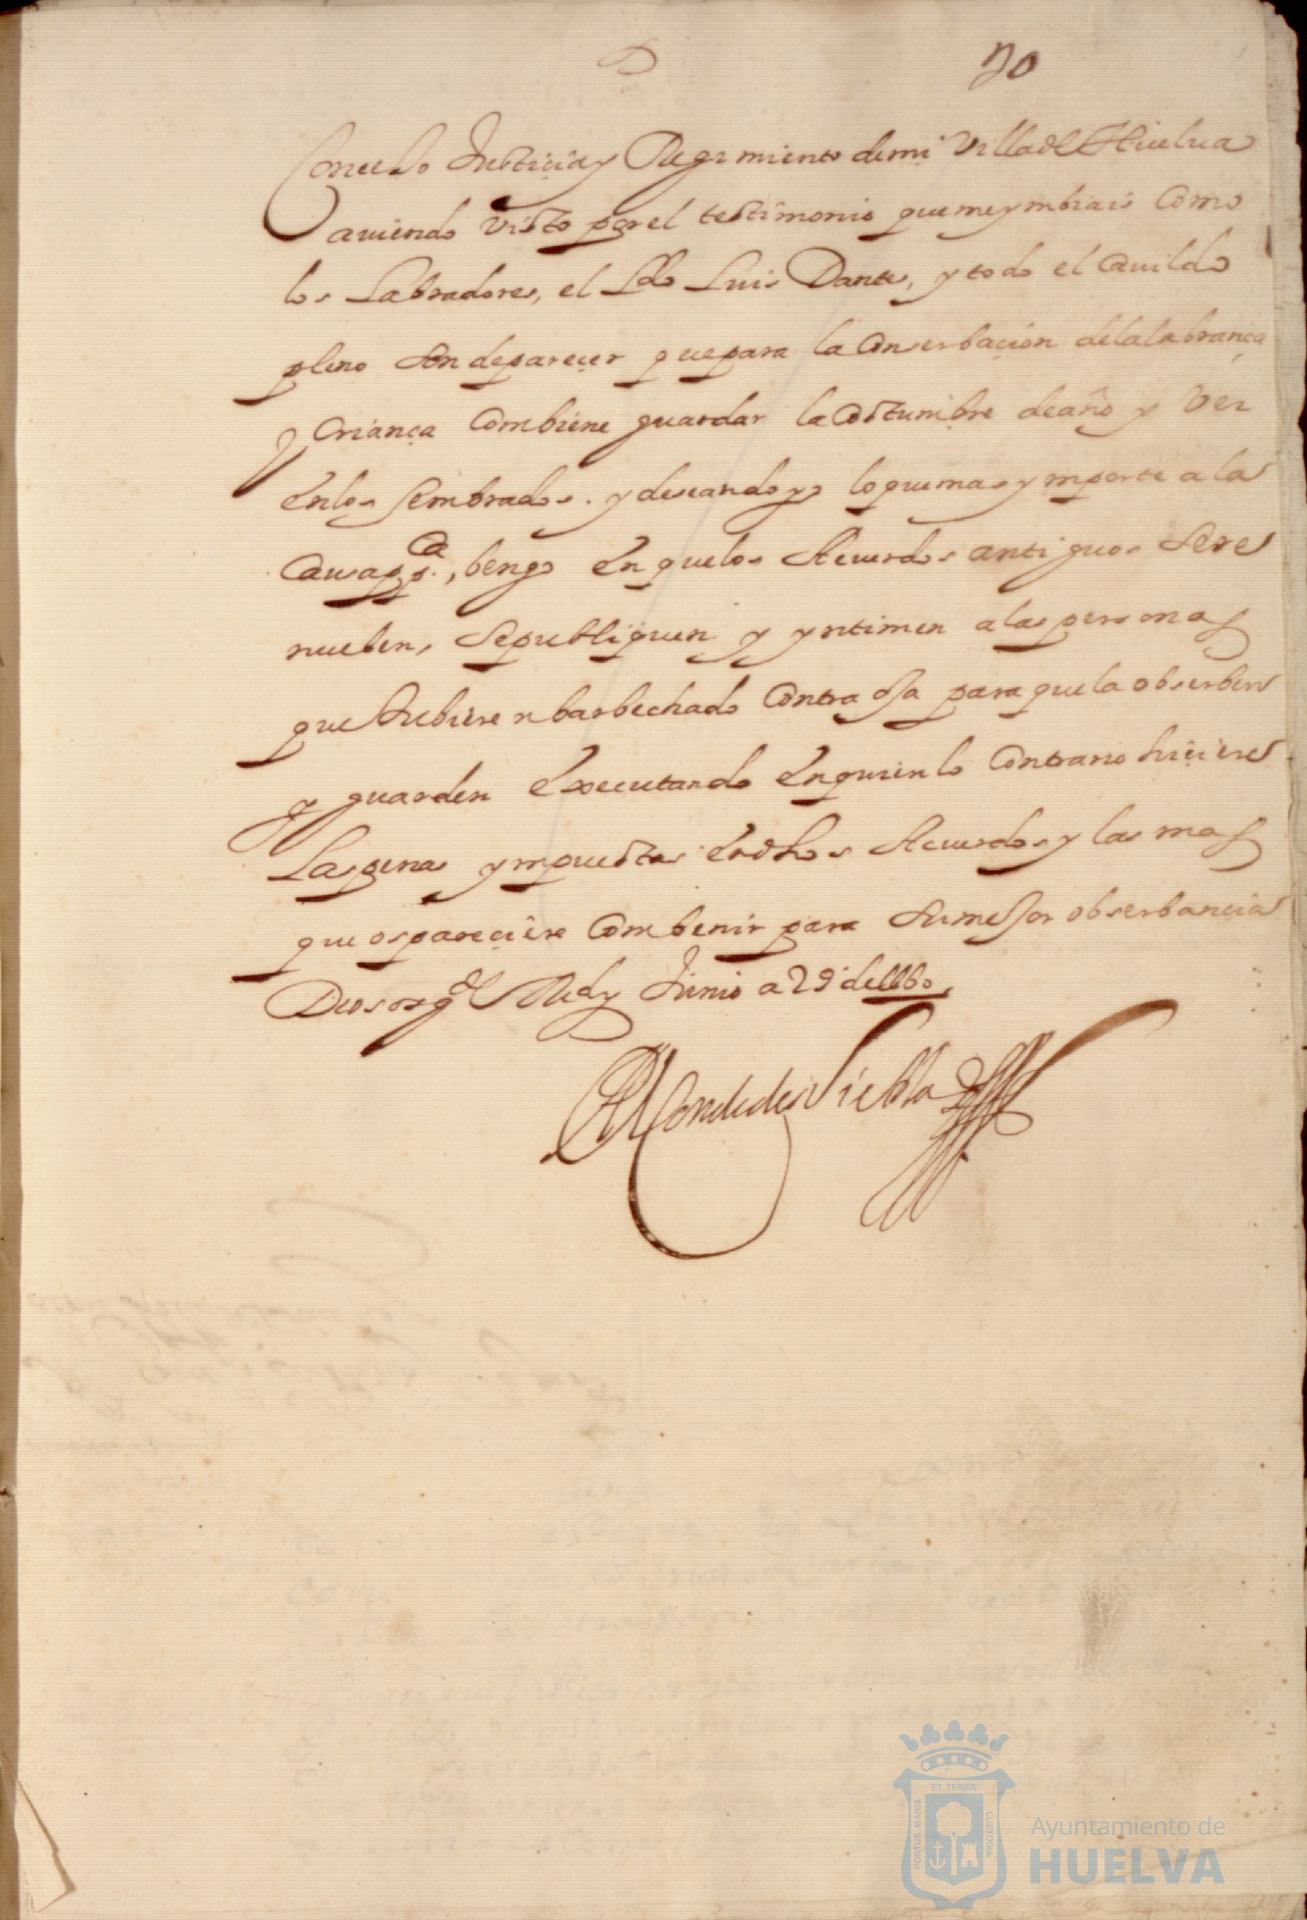 20
Concejo Justiçia y Regimiento de mi Villa de Huelua
auiendo visto por el testimonio que me ymbiais Como
los Labradores, el Ldo Luis Dante, y todo el Cauildo
pleno son de pareçer que para la Conserbaçion de la labrança
y Criança Combiene guardar la Costumbre de año y Vez
en los sembrados. y deseando yo lo que mas ymporte a la
Causa ppca, bengo en que los Acuerdos antiguos se re
nueben, se publiquen y yntimen a las personas
que hubieren barbechado Contra oja para que la obserben
y guarden executando en quien lo Contrario hiçiere
Las penas ympuestas en dhos Acuerdos y las mas
que os pareçiere Combenir para su mejor obserbançia
Dios os gde Md y Junio a 29 de
El Conde de Niebla
ET TERRÆ
PORTUS MARIS
CUSTODIA
Ayuntamiento de
HUELVA